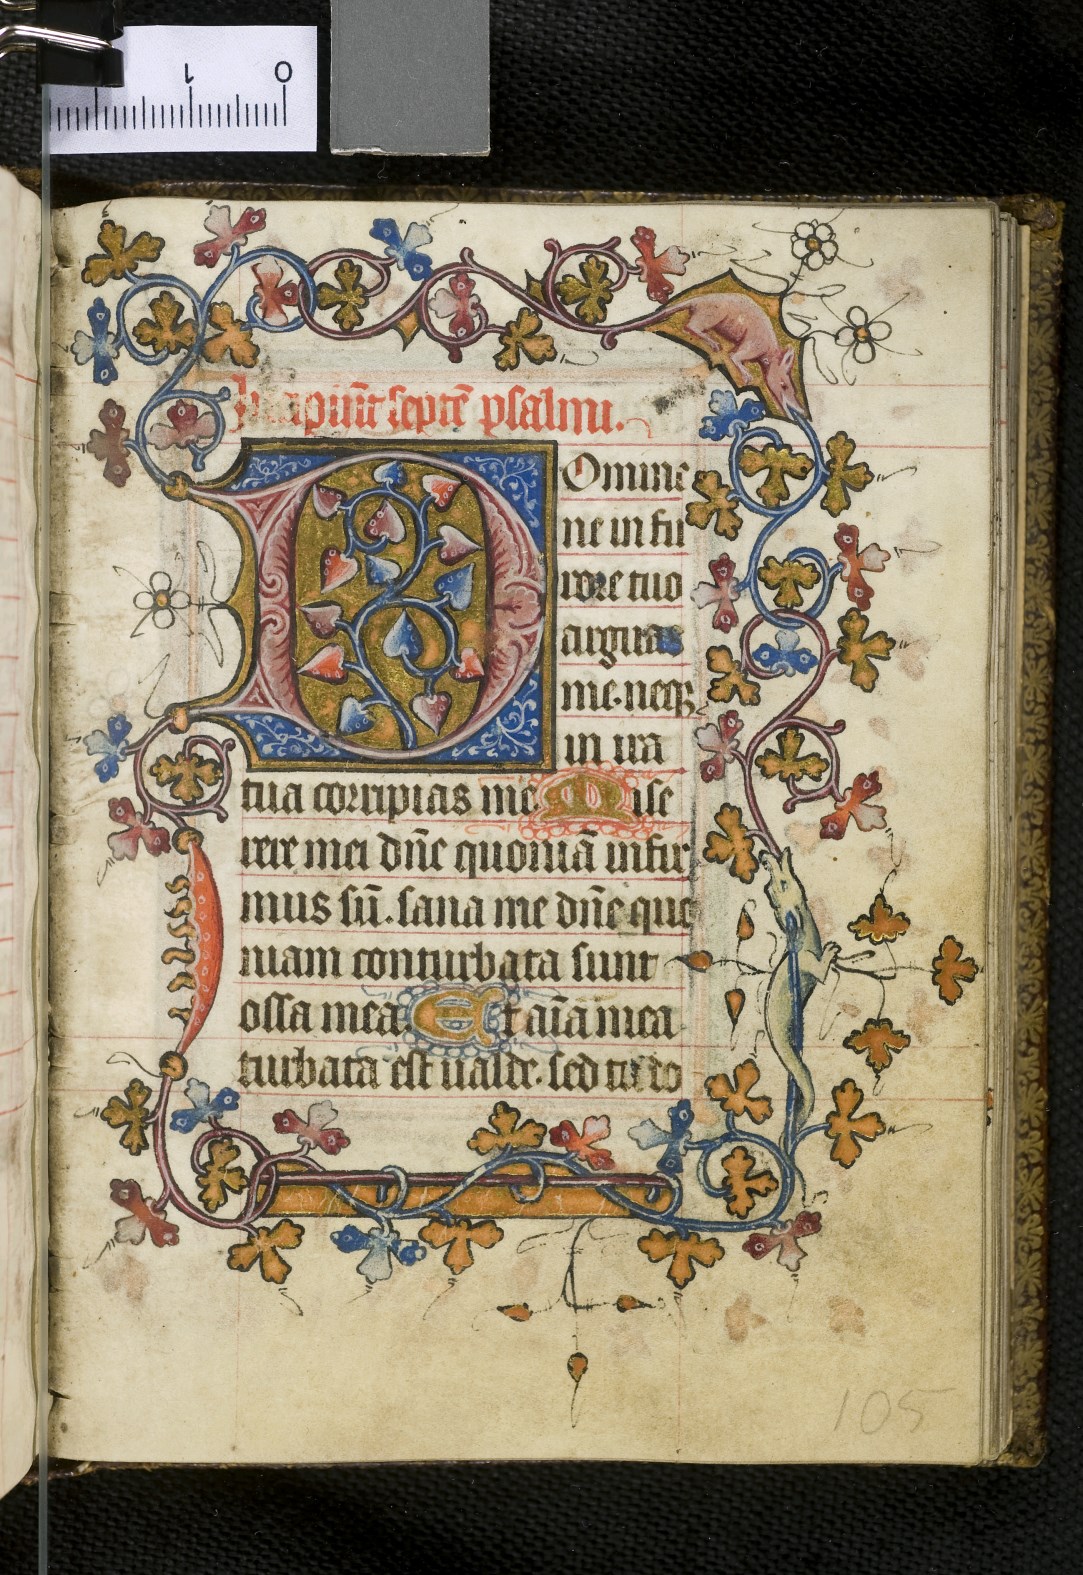 1 0
Incipiũt septẽ psalmi.
Omine
ne in fu
rore tuo
arguas
me. neqꝫ
in ira
tua corripias me Mise
rere mei dñe quoniã infir
mus sũ. sana me dñe quo
niam conturbata sunt
ossa mea Et aĩa mea
turbata est ualde. sed tu do
105